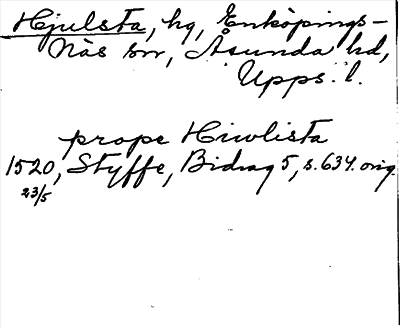 Hjulsta, hg, Enköpings-
Näs sn, Åsunda hd,
Upps. l.
prope Hiwlista
1520, Styffe, Bidrag 5, s. 634. orig.
23/5